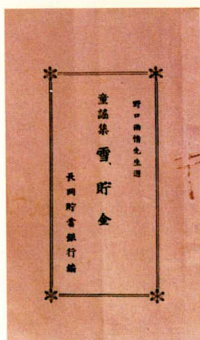 野口雨情先生選
童謠集 雪貯金
長岡貯蓄銀行編